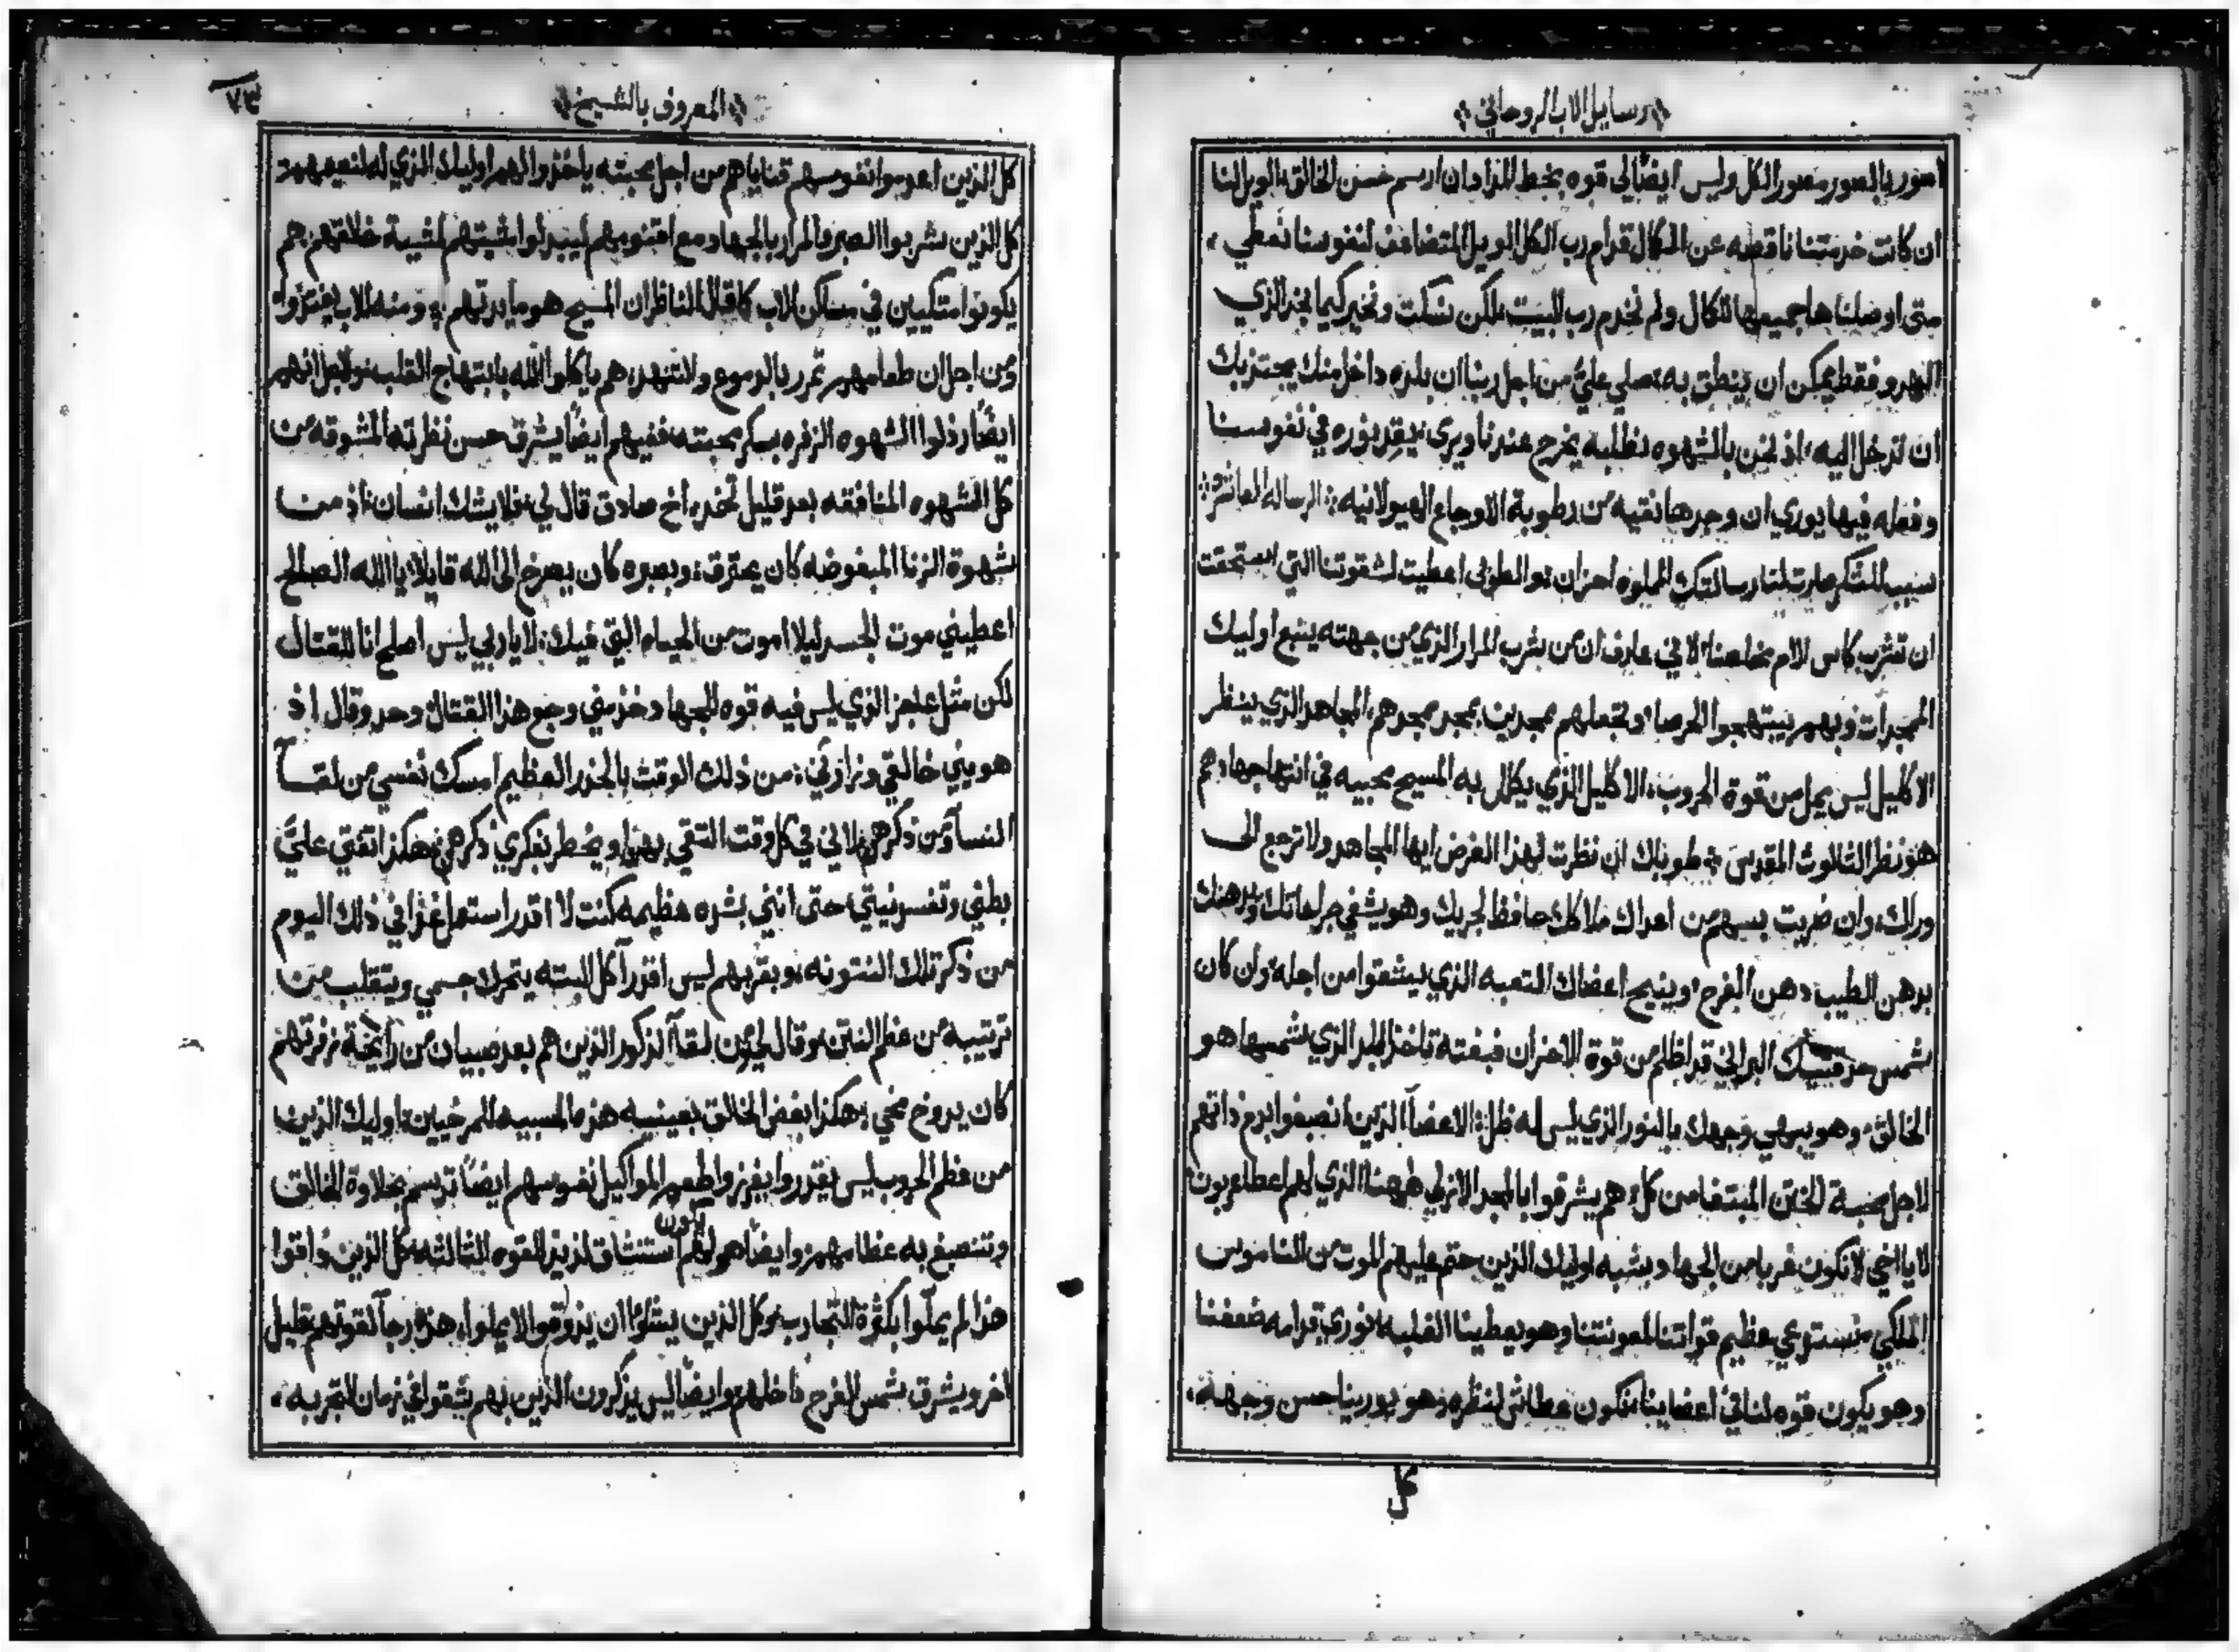 رسايل الاب الروحاني
اصور بالصور مصور الكل وليس ايضًا لي قوه بخط المداد ان ارسم حسن الخالق الويل لنا
ان كانت خدمتنا ناقصه عن الكمال قدام رب الكل الويل المتضاعف لنفوسنا نعطي
متى اوصلناها جميعها للكمال ولم نخدم رب البيت لكن نسكت ونخبر كيما نجد الذي
الهدو فقط يمكن ان ينطق به صلي عليَّ من اجل ربنا ان بلده داخل منك يجتذبك
ان تدخل اليه اذ نحن بالشهوه نطلبه يخرج عندنا ويرى يقد نوره في نفوسنا
وفعله فيها يوري ان وجدها نقيه من رطوبة الاوجاع الهيولانيه الرساله العاشره
سبب للشكر صارت لنا رسالتك المملوه احزان والطوبى اعطيت لشقوتنا التي استحقت
ان تشرب كاس الام مخلصنا لاني عارف ان من يشرب المرار الذي من جهته يتبع اوليك
الممجدات وبهم يبتهجوا الحرصا وتجعلهم ممجدين بمجد مجدهم المجاهد الذي ينظر
الاكليل ليس يمل من قوة الحروب الاكليل الذي يكلل به المسيح محبيه في انتها جهادهم
هو نظر الثالوث المقدس طوباك ان نظرت لهذا الغرض ايها المجاهد ولا ترجع الى
وراك وان ضربت بسهم من اعداك ملاكك حافظ لحربك وهو يشفي جراحاتك ويدهنك
بدهن الطيب دهن الفرح وينيح اعضاك التعبه الذي يشقوا من اجله وان كان
شمس حدقتيك البراني قد اظلم من قوة الاحزان فبغته تاخذ البلد الذي شمسها هو
الخالق وهو يبهي وجهك بالنور الذي ليس له ظل الاعضآ الذين انصبغوا بدم ذاتهم
لاجل محبة الختن المبتغا من كل هم يشرقوا بالمجد الازلي ههنا الذي لهم اعطا عربون
لا يا اخي لا نكون غربا من الجهاد بشبه اوليك الذين حتم عليهم الموت من الناموس
الملكي نستدعي عظيم قواتنا لمعونتنا وهو يعطينا الغلبه نوري قدامه ضعفنا
وهو يكون قوه لنا في اعضاينا نكون عطاش لنظره وهو يورينا حسن وجهه
كل
المعروف بالشيخ
٧٣
كل الذين اعدموا نفوسهم قناياهم من اجل محبته ياخذوا لهم اوليك الذي له لنعيمهم
كل الذين شربوا الصبر والمرار بالجهاد مع اقنومهم ليبدلوا مشيتهم لمشية خلاقهم هم
يكونوا متكيين في مساكن الاب كما قال الناظر ان المسيح هو مايدتهم ومنه للاب يغتذوا
ومن اجل ان طعامهم تمرر بالدموع والتنهد هم ياكلوا الله بابتهاج القلب ولاجل انهم
ايضًا رذلوا الشهوه الزفره بسكر محبته ففيهم ايضًا يشرق حسن نظرته المشوقه من
كل الشهوه المنافقه بعد قليل تخمد اخ صادق قال لي فلا يشك انسان اذ من
شهوة الزنا المبغوضه كان يحترق وبصبره كان يصرخ الى الله قايلا يا الله الصالح
اعطيني موت الجسد ليلا اموت من الحياه التي فيك لا يا ربي ليس اصلح انا للقتال
لكن مثل عاجز الذي ليس فيه قوه للجهاد خذ مني وجع هذا القتال وحده وقال اذ
هو بيني خالقي ونزازني من ذلك الوقت بالحذر العظيم امسك نفسي من لقـــآ
النسآ ومن ذكرهن لاني في كل وقت التقي بهن او يخطر بفكري ذكرهن هكذا تغثي عليَّ
بطني وتفسد نيتي حتى انني بشره عظيمه كنت لا اقدر استعمل غذا في ذلك اليوم
من ذكر تلك النتونه وبقربهم ليس اقدر اكل البته يتحرك جسمي ويتقلب من
ترتيبه من عظم النتن وقال لي من لقآ الذكور الذين هم بعد صبيان من رايحة زفرتهم
كان يدوخ مخي هكذا بغض الخالق بعينيه هذه السبيه للمرخيين اوليك الذين
من عظم الحروب ليس يقدروا يفرزوا طعم المواكيل نفوسهم ايضًا ترسم بحلاوة الخالق
وتنصبغ به عظامهم وايضًا هو لهم يكون استنشاق لذيذ القوه الثالثه كل الذين ذاقوا
هذا لم يملّوا بكثرة التجارب وكل الذين يشاوا ان يذوقوا لا يملوا هذه رجآ لقوتهم قليل
اخر ويشرق شمس الفرح داخلهم وايضًا ليس يذكرون الذين بهم شقوا في زمان التجربه